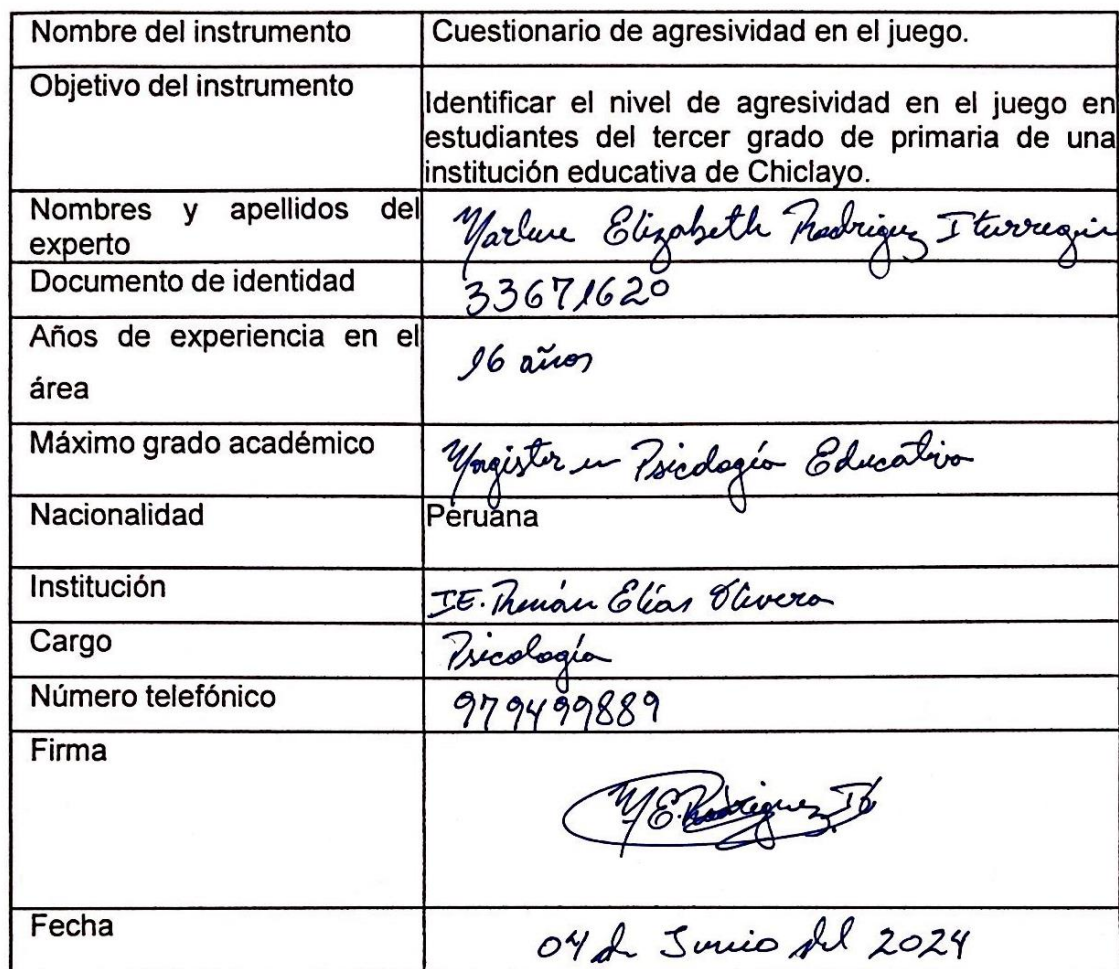 Nombre del instrumento Cuestionario de agresividad en el juego.
Objetivo del instrumento
Identificar el nivel de agresividad en el juego en
estudiantes del tercer grado de primaria de una
institución educativa de Chiclayo.
Nombres y apellidos del
experto
Elizabeth Rodriguez
Documento de identidad 33671620
Años de experiencia en el
área
16 años
Máximo grado académico Magister en Psicología Educativa
Nacionalidad Peruana
Institución I.E. Elías Olivera
Cargo Psicología
Número telefónico 979499889
Firma
M E. Rodriguez It
Fecha 04 de Junio del 2024